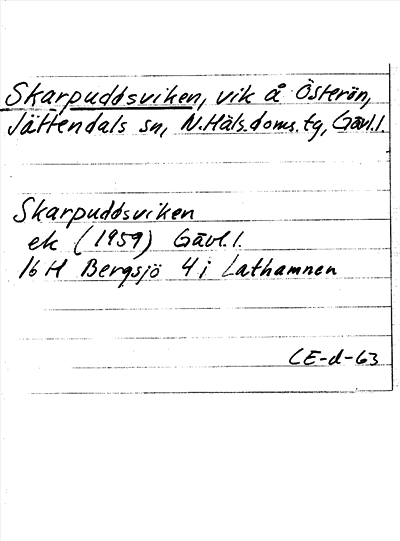 Skarpuddsviken, vik å Österön,
Jättendals sn, N.Häls.doms.tg, Gävl.l.
Skarpuddsviken
ek (1959) Gävl.l.
16 H Bergsjö 4 i Lathamnen
CE-d-63